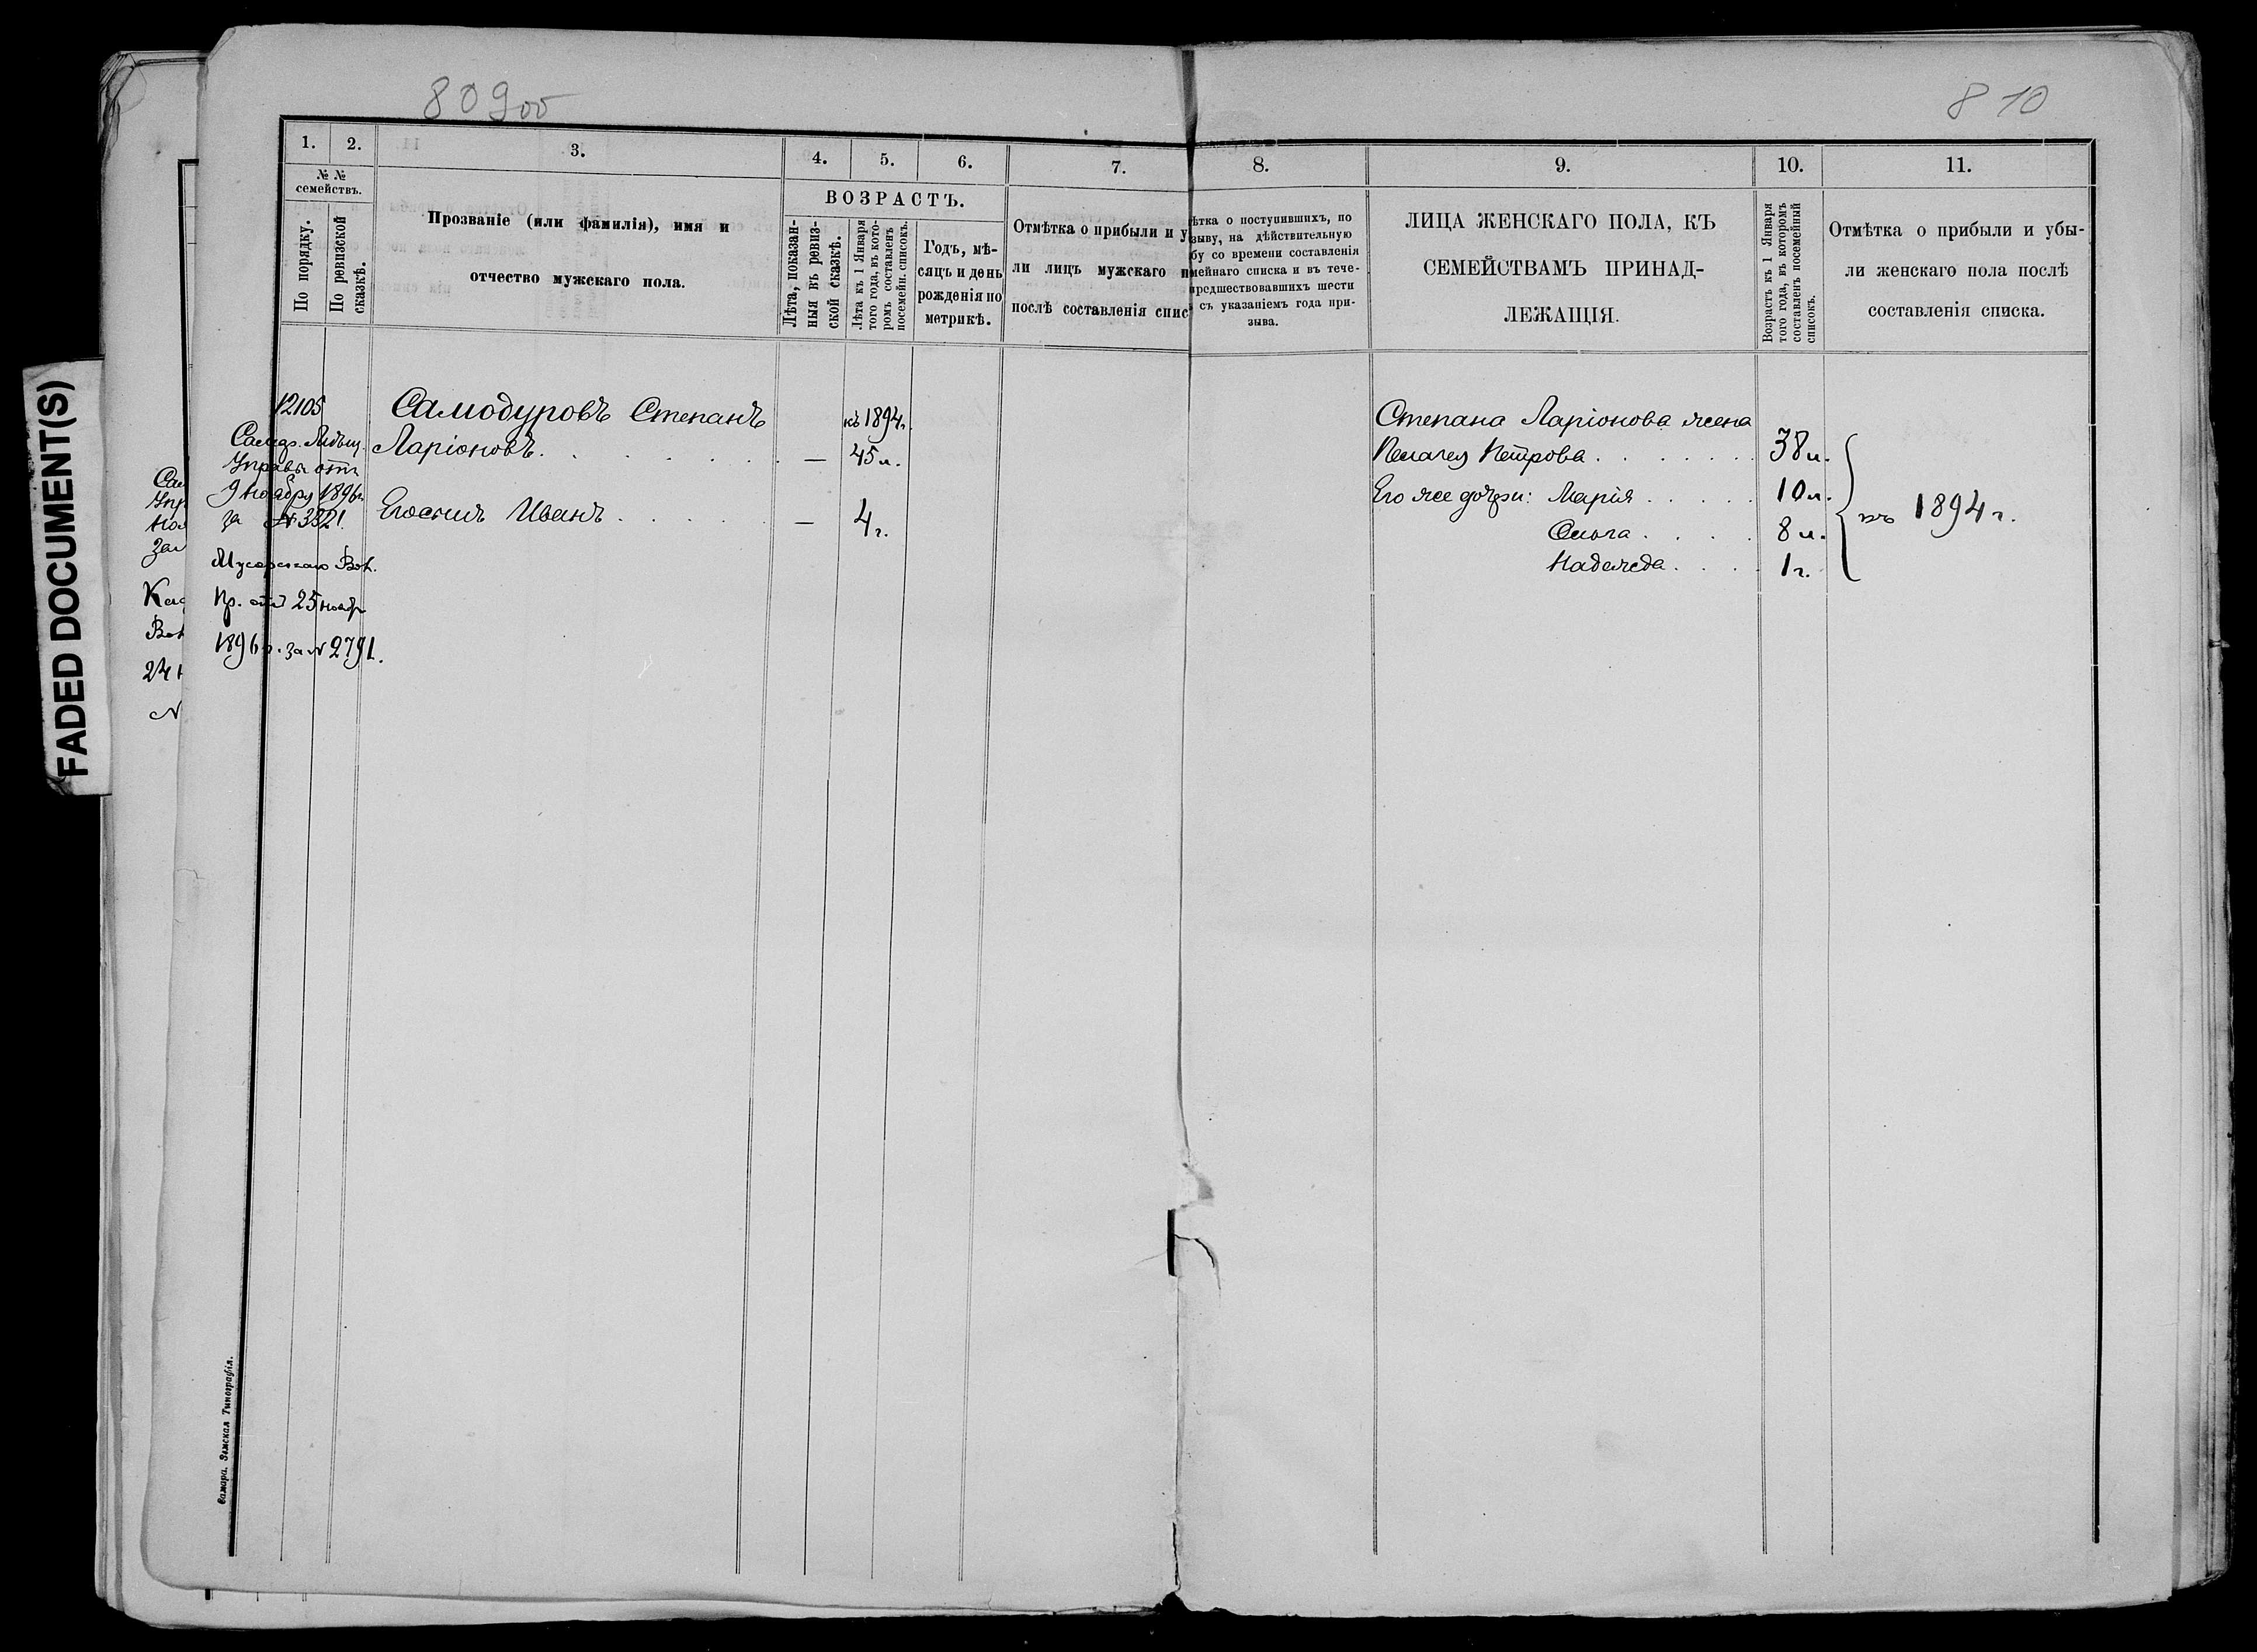 809об
810
FADED DOCUMENT(S)
1.
2.
3.
4.
5.
6.
7.
8.
9.
10.
11.
№ №
семействъ.
По порядку.
По ревизской
сказкѣ.
Прозваніе (или фамилія), имя и
отчество мужскаго пола.
ВОЗРАСТЪ.
Лѣта, показан-
ныя въ ревиз-
ской сказкѣ.
Лѣта къ 1 Января
того года, въ кото-
ромъ составленъ
посемейн. списокъ.
Годъ, мѣ-
сяцъ и день
рожденія по
метрикѣ.
Отмѣтка о прибыли и у
ли лицъ мужскаго п
послѣ составленія спис
ѣтка о поступившихъ, по
зыву, на дѣйствительную
бу со времени составленія
мейнаго списка и въ тече-
предшествовавшихъ шести
съ указаніемъ года при-
зыва.
ЛИЦА ЖЕНСКАГО ПОЛА, КЪ
СЕМЕЙСТВАМЪ ПРИНАД-
ЛЕЖАЩІЯ.
Возрастъ къ 1 Января
того года, въ которомъ
составленъ посемейный
списокъ.
Отмѣтка о прибыли и убы-
ли женскаго пола послѣ
составленія списка.
12105
Самар. Мѣщ.
Управы отъ
9 Ноября 1896г.
за № 3321
Мусорскаго Вол.
Пр. отъ 25 ноябр
1896 г. за № 2791.
Самодуровъ Степанъ
къ 1894г.
Ларіоновъ . . . . . . — 45 л.
Его сынъ Иванъ . . . . — 4 г.
Степана Ларіонова жена
Пелагея Петрова . . . . . . 38 л.
Его же дочери: Марія . . . . . 10 л.
Ольга . . . . 8 л.
Надежда . . . . 1 г.
къ 1894 г.
Самара. Земская Типографія.